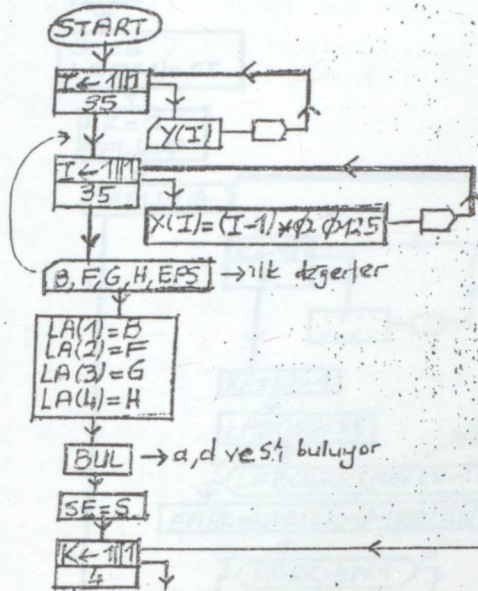 START
I ← 1 | 1
35
Y(I)
I ← 1 | 1
35
X(I)=(I-1)*Ø.Ø125
B, F, G, H, EPS → ilk değerler
LA(1)=B
LA(2)=F
LA(3)=G
LA(4)=H
BUL → a, d ve S'i buluyor
SE=S
K ← 1 | 1
4